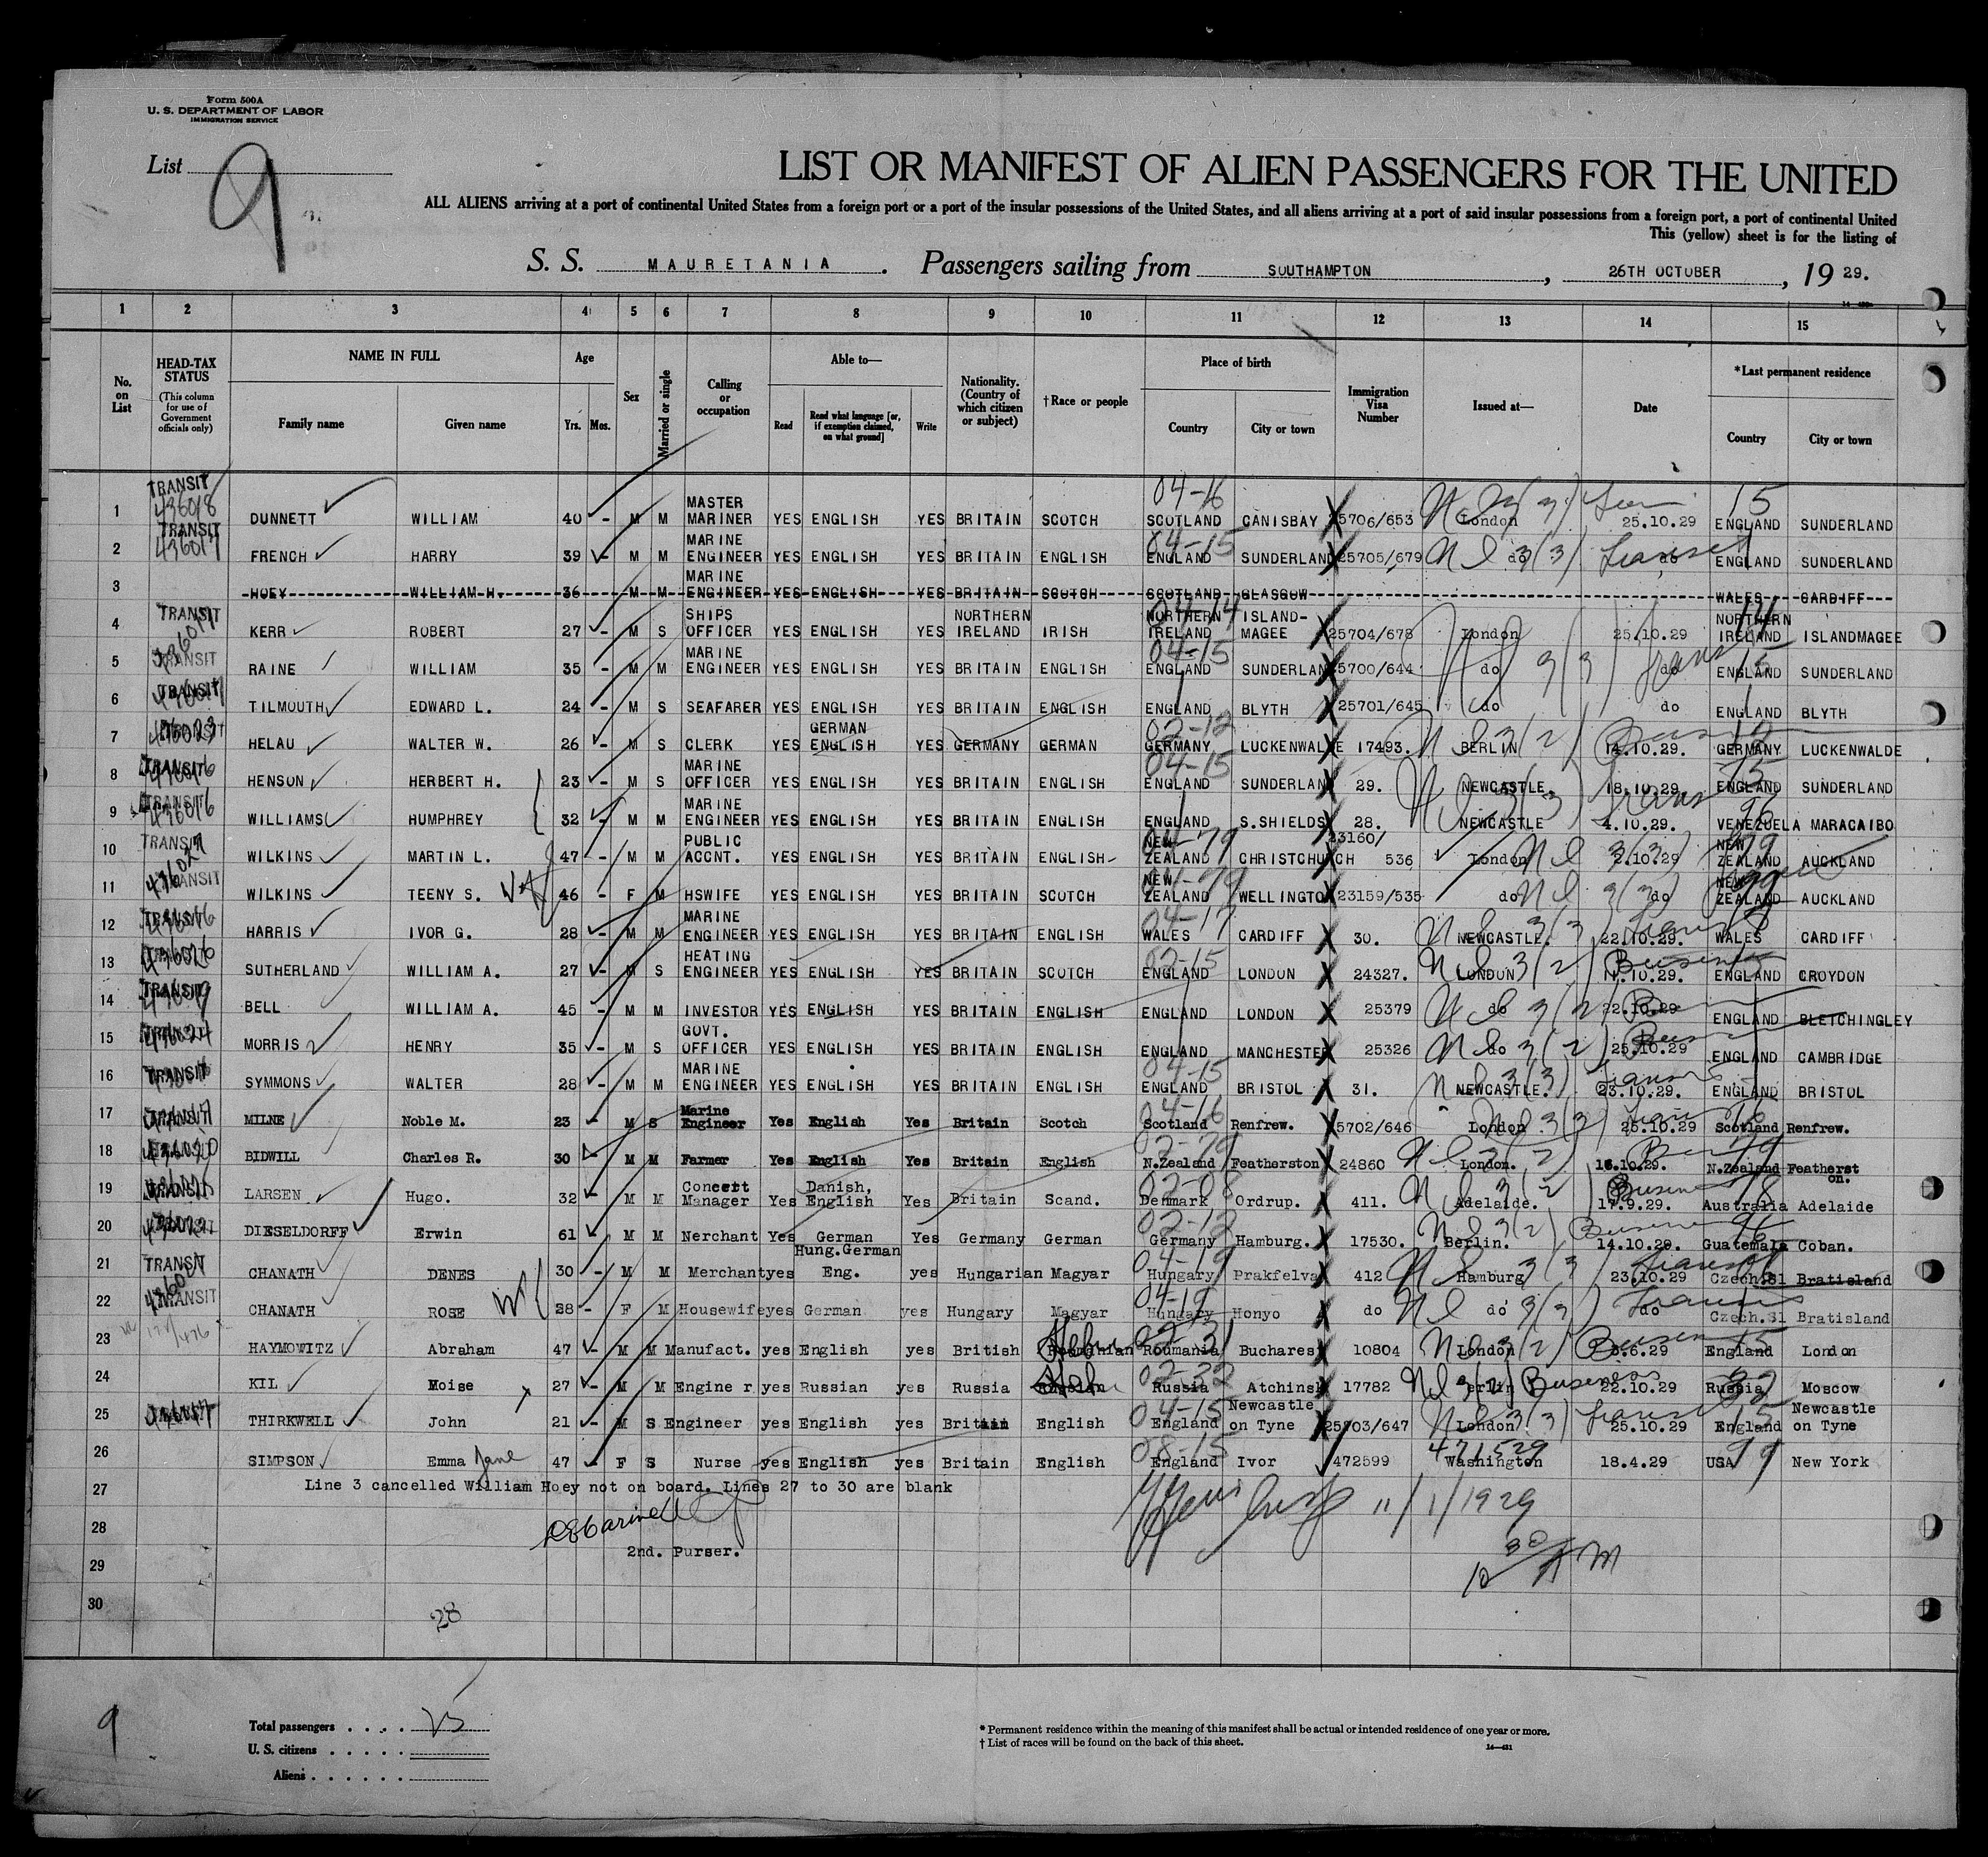 Form 500A
U. S. DEPARTMENT OF LABOR
IMMIGRATION SERVICE
List 9
LIST OR MANIFEST OF ALIEN PASSENGERS FOR THE UNITED
ALL ALIENS arriving at a port of continental United States from a foreign port or a port of the insular possessions of the United States, and all aliens arriving at a port of said insular possessions from a foreign port, a port of continental United
This (yellow) sheet is for the listing of
S. S. MAURETANIA. Passengers sailing from SOUTHAMPTON, 26TH OCTOBER, 19 29.
1 2 3 4 5 6 7 8 9 10 11 12 13 14 15
No. on List
HEAD-TAX STATUS
(This column for use of Government officials only)
NAME IN FULL
Family name
Given name
Age
Yrs. Mos.
Sex
Married or single
Calling or occupation
Able to—
Read
Read what language [or, if exemption claimed, on what ground]
Write
Nationality. (Country of which citizen or subject)
† Race or people
Place of birth
Country
City or town
Immigration Visa Number
Issued at—
Date
*Last permanent residence
Country
City or town
1 TRANSIT 436018 DUNNETT WILLIAM 40 - M M MASTER MARINER YES ENGLISH YES BRITAIN SCOTCH 04-16 SCOTLAND CANISBAY 5706/653 London 25.10.29 15 ENGLAND SUNDERLAND
2 TRANSIT 436017 FRENCH HARRY 39 - M M MARINE ENGINEER YES ENGLISH YES BRITAIN ENGLISH 04-15 ENGLAND SUNDERLAND 25705/679 do do ENGLAND SUNDERLAND
3 HOEY WILLIAM H. 36 M M MARINE ENGINEER YES ENGLISH YES BRITAIN SCOTCH SCOTLAND GLASGOW WALES CARDIFF
4 TRANSIT KERR ROBERT 27 - M S SHIPS OFFICER YES ENGLISH YES NORTHERN IRELAND IRISH 04-14 NORTHERN IRELAND ISLAND-MAGEE 25704/678 London 25.10.29 14 NORTHERN IRELAND ISLANDMAGEE
5 TRANSIT RAINE WILLIAM 35 - M M MARINE ENGINEER YES ENGLISH YES BRITAIN ENGLISH 04-15 ENGLAND SUNDERLAN 5700/644 do do 15 ENGLAND SUNDERLAND
6 TRANSIT TILMOUTH EDWARD L. 24 - M S SEAFARER YES ENGLISH YES BRITAIN ENGLISH ENGLAND BLYTH 25701/645 do do ENGLAND BLYTH
7 TRANSIT HELAU WALTER W. 26 - M S CLERK YES GERMAN ENGLISH YES GERMANY GERMAN 02-12 GERMANY LUCKENWALDE 17493. BERLIN 14.10.29. GERMANY LUCKENWALDE
8 TRANSIT HENSON HERBERT H. 23 - M S MARINE OFFICER YES ENGLISH YES BRITAIN ENGLISH 04-15 ENGLAND SUNDERLAN 29. NEWCASTLE. 18.10.29. 15 ENGLAND SUNDERLAND
9 TRANSIT WILLIAMS HUMPHREY 32 - M M MARINE ENGINEER YES ENGLISH YES BRITAIN ENGLISH ENGLAND S.SHIELDS 28. NEWCASTLE 4.10.29. VENEZUELA MARACAIBO
10 TRANSIT WILKINS MARTIN L. 47 - M M PUBLIC ACCNT. YES ENGLISH YES BRITAIN ENGLISH 04-79 NEW ZEALAND CHRISTCHURCH 23160/536 London 2.10.29 NEW ZEALAND AUCKLAND
11 TRANSIT WILKINS TEENY S. 46 - F M HSWIFE YES ENGLISH YES BRITAIN SCOTCH 04-79 NEW ZEALAND WELLINGTO 23159/535 do do NEW ZEALAND AUCKLAND
12 TRANSIT HARRIS IVOR G. 28 - M M MARINE ENGINEER YES ENGLISH YES BRITAIN ENGLISH 04-17 WALES CARDIFF 30. NEWCASTLE. 22.10.29. WALES CARDIFF
13 TRANSIT SUTHERLAND WILLIAM A. 27 - M S HEATING ENGINEER YES ENGLISH YES BRITAIN SCOTCH 02-15 ENGLAND LONDON 24327. LONDON 11.10.29. ENGLAND CROYDON
14 TRANSIT BELL WILLIAM A. 45 - M M INVESTOR YES ENGLISH YES BRITAIN ENGLISH ENGLAND LONDON 25379 do 22.10.29 ENGLAND BLETCHINGLEY
15 TRANSIT MORRIS HENRY 35 - M S GOVT. OFFICER YES ENGLISH YES BRITAIN ENGLISH ENGLAND MANCHESTER 25326 do 25.10.29 ENGLAND CAMBRIDGE
16 TRANSIT SYMMONS WALTER 28 - M M MARINE ENGINEER YES ENGLISH YES BRITAIN ENGLISH 04-15 ENGLAND BRISTOL 31. NEWCASTLE. 23.10.29. ENGLAND BRISTOL
17 TRANSIT MILNE Noble M. 23 - M S Marine Engineer Yes English Yes Britain Scotch 04-16 Scotland Renfrew. 5702/646 London 25.10.29 16 Scotland Renfrew.
18 BIDWILL Charles R. 30 - M M Farmer Yes English Yes Britain English 02-79 N.Zealand Featherston 24860 London. 16.10.29. N.Zealand Featherst on.
19 TRANSIT LARSEN Hugo. 32 - M M Concert Manager Yes Danish, English Yes Britain Scand. 02-08 Denmark Ordrup. 411. Adelaide. 17.9.29. Australia Adelaide
20 DIESELDORFF Erwin 61 M M Nerchant Yes German Yes Germany German 02-12 Germany Hamburg. 17530. Berlin. 14.10.29. Guatemala Coban.
21 TRANSIT CHANATH DENES 30 - M M Merchant yes Hung.German Eng. yes Hungarian Magyar 04-19 Hungary Prakfelva 412 Hamburg 23.10.29 Czech.Sl Bratisland
22 TRANSIT CHANATH ROSE 28 - F M Housewife yes German yes Hungary Magyar 04-19 Hungary Honyo do do do Czech.Sl Bratisland
23 HAYMOWITZ Abraham 47 - M M Manufact. yes English yes British Roumanian Roumania Bucharest 10804 London Busine 6.6.29 15 England London
24 KIL Moise 27 - M M Engine r yes Russian yes Russia 02-32 Russia Atchinsk 17782 Berlin Business 22.10.29 32 Russia Moscow
25 THIRKWELL John 21 - M S Engineer yes English yes Britain English 04-15 England Newcastle on Tyne 25703/647 London 25.10.29 15 England Newcastle on Tyne
26 SIMPSON Emma Jane 47 - F S Nurse yes English yes Britain English 08-15 England Ivor 472599 471529 Washington 18.4.29 USA 99 New York
27 Line 3 cancelled William Hoey not on board. Lines 27 to 30 are blank
11/1/1929
28
2nd. Purser.
10 30 AM
29
30
28
9
Total passengers . . . . 25
U. S. citizens . . . . .
Aliens . . . . . .
* Permanent residence within the meaning of this manifest shall be actual or intended residence of one year or more.
† List of races will be found on the back of this sheet.